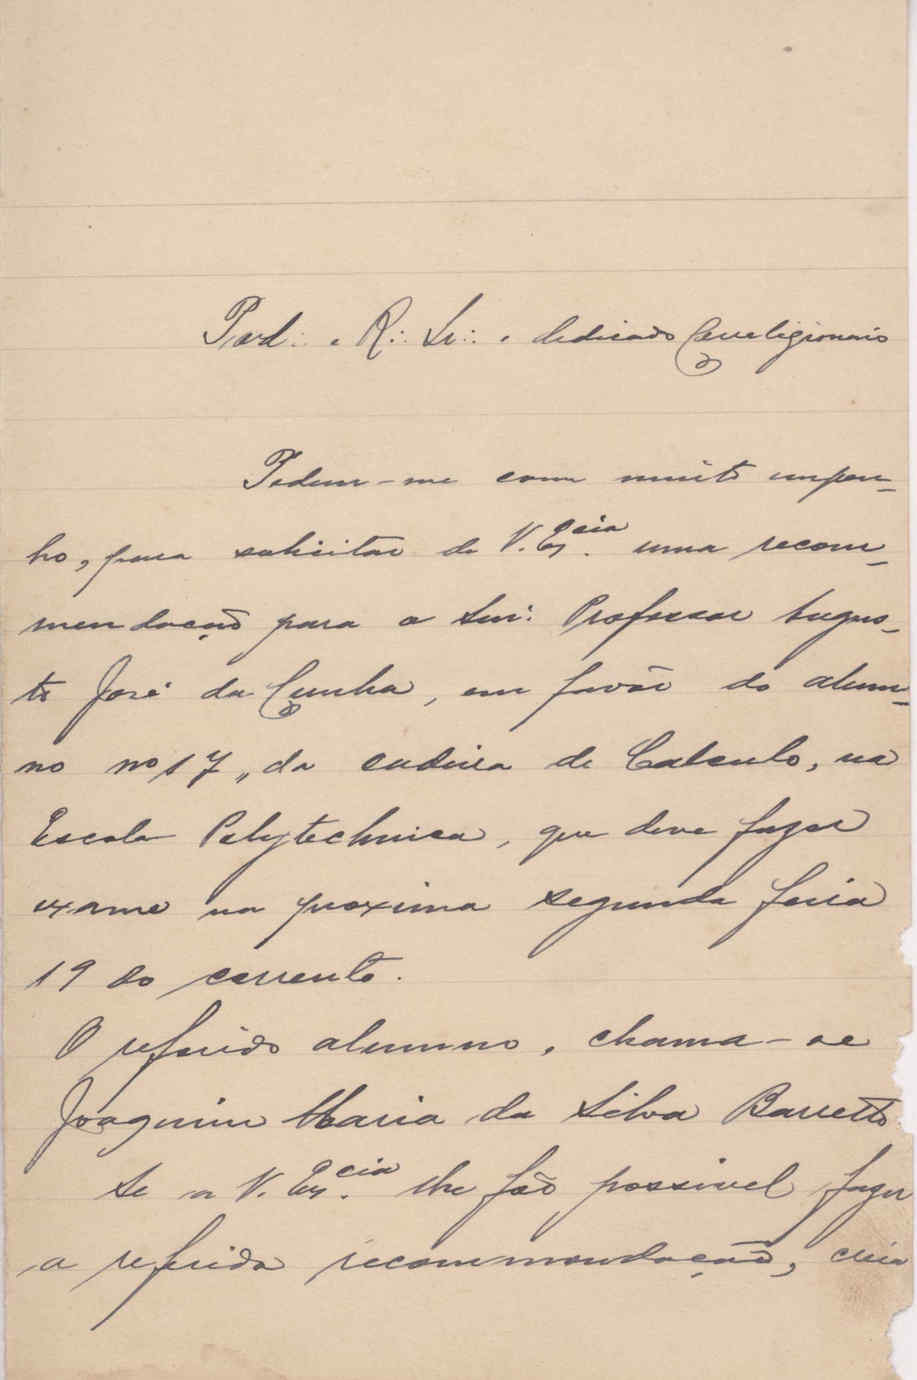 Pod∴ e R∴ Ir∴ e dedicado Correligionario
Pedem-me com muito empe-
nho, para solicitar de V. Ex.cia uma recom-
mendação para o Snr: Professor Augus-
to José da Cunha, em favôr do alum-
no nº 17, da cadeira de Calculo, na
Escola Polytechnica, que deve fazer
exame na proxima segunda feira
19 do corrente.
O referido alumno, chama-se
Joaquim Maria da Silva Barretto.
Se a V. Ex.cia lhe fôr possivel fazer
a referida recommendação, creia